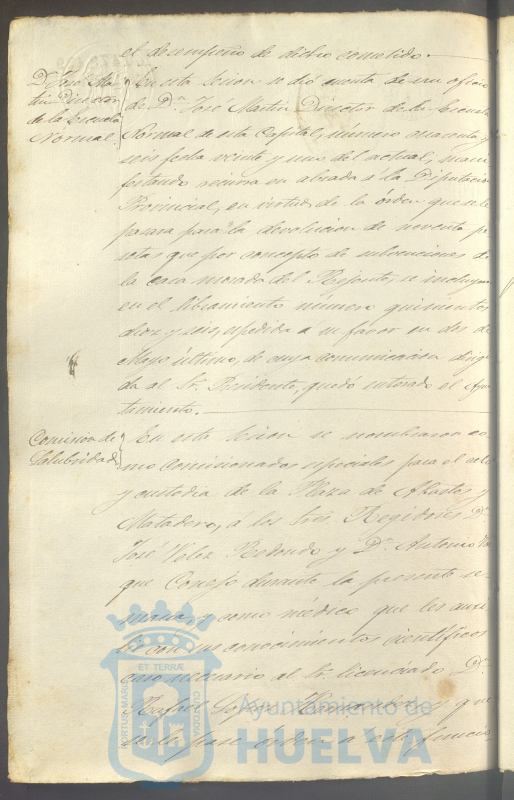 el desempeño de dicho cometido.
Dn. José Mar
tin Director
de la Escuela
Normal.
En esta sesion se dió cuenta de un oficio
de Dn. José Martin Director de la Escuela
Normal de esta Capital, número cuarenta y
seis fecha veinte y uno del actual, mani
festando recurra en alzada a la Diputacion
Provincial, en virtud de la órden que se le
pasara para la devolucion de noventa pe
setas que por concepto de subvenciones de
la casa morada del Regente, se incluyen
en el libramiento número quinientos
diez y seis, espedido a su favor en dos de
Mayo último, de cuya comunicacion dirigi
da al Sr. Presidente, quedó enterado el Ayun
tamiento.
Comision de
Salubridad
En esta sesion se nombraron co
mo comisionados especiales para el celo
y custodia de la Plaza de Abastos y
Matadero, á los tres Regidores Dn.
José Velez Redondo y Dn. Antonio
que Conejo durante la presente se
mana, y como médico que les auxi
lie con sus conocimientos científicos
caso necesario al Sr. licenciado Dn.
Rafael Lopez y que
se le pase órden a este
PORTUS MARIS
ET TERRÆ
CUSTODIA
Ayuntamiento de
HUELVA